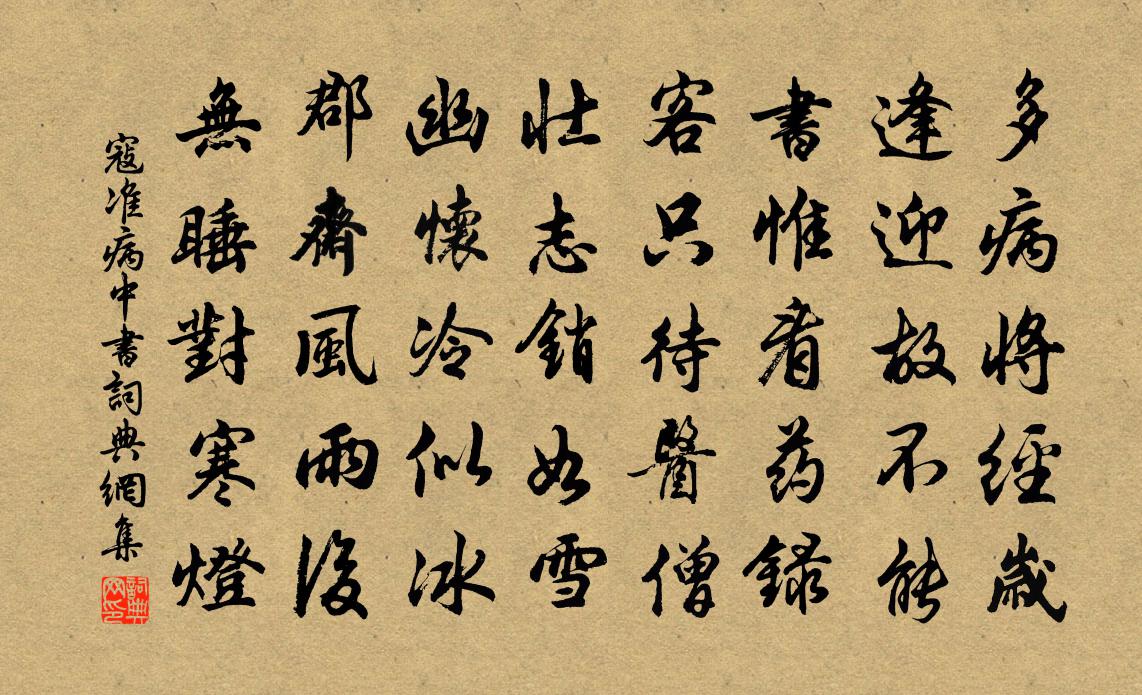 多病將經歲
逢迎故不能
書惟看药錄
客只待醫僧
壯志銷如雪
幽懷冷似冰
郡齋風雨後
無睡對寒燈
寇准病中書詞典網集
詞典网印